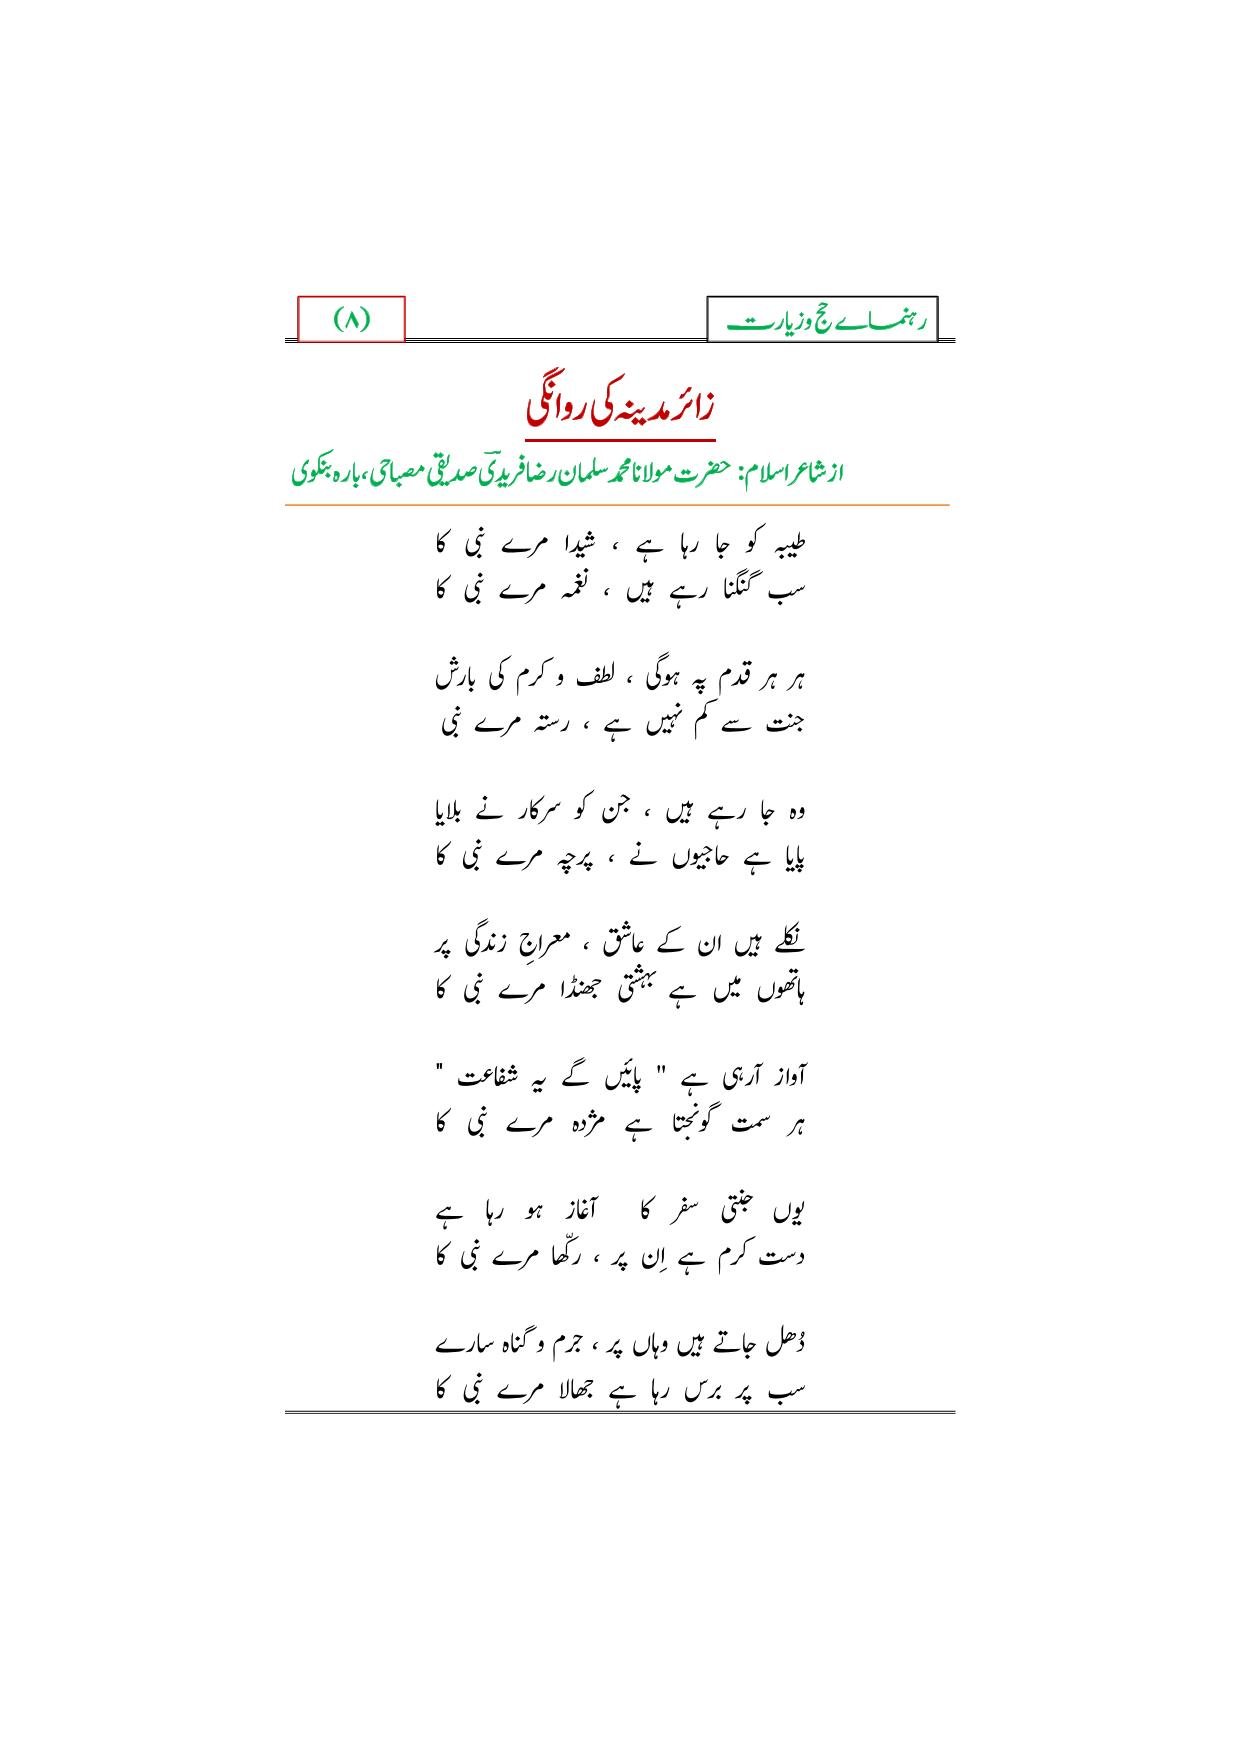 رہنماے حج وزیارت
(۸)
زائر مدینہ کی روانگی
از شاعر اسلام: حضرت مولانا محمد سلمان رضا فریدیؔ صدیقی مصباحی، بارہ بنکوی
طیبہ کو جا رہا ہے ، شیدا مرے نبی کا
سب گنگنا رہے ہیں ، نغمہ مرے نبی کا
ہر ہر قدم پہ ہوگی ، لطف و کرم کی بارش
جنت سے کم نہیں ہے ، رستہ مرے نبی
وہ جا رہے ہیں ، جن کو سرکار نے بلایا
پایا ہے حاجیوں نے ، پرچہ مرے نبی کا
نکلے ہیں ان کے عاشق ، معراجِ زندگی پر
ہاتھوں میں ہے بہشتی جھنڈا مرے نبی کا
آواز آرہی ہے " پائیں گے یہ شفاعت "
ہر سمت گونجتا ہے مژدہ مرے نبی کا
یوں جنتی سفر کا آغاز ہو رہا ہے
دست کرم ہے اِن پر ، رکّھا مرے نبی کا
دُھل جاتے ہیں وہاں پر ، جرم و گناہ سارے
سب پر برس رہا ہے جھالا مرے نبی کا